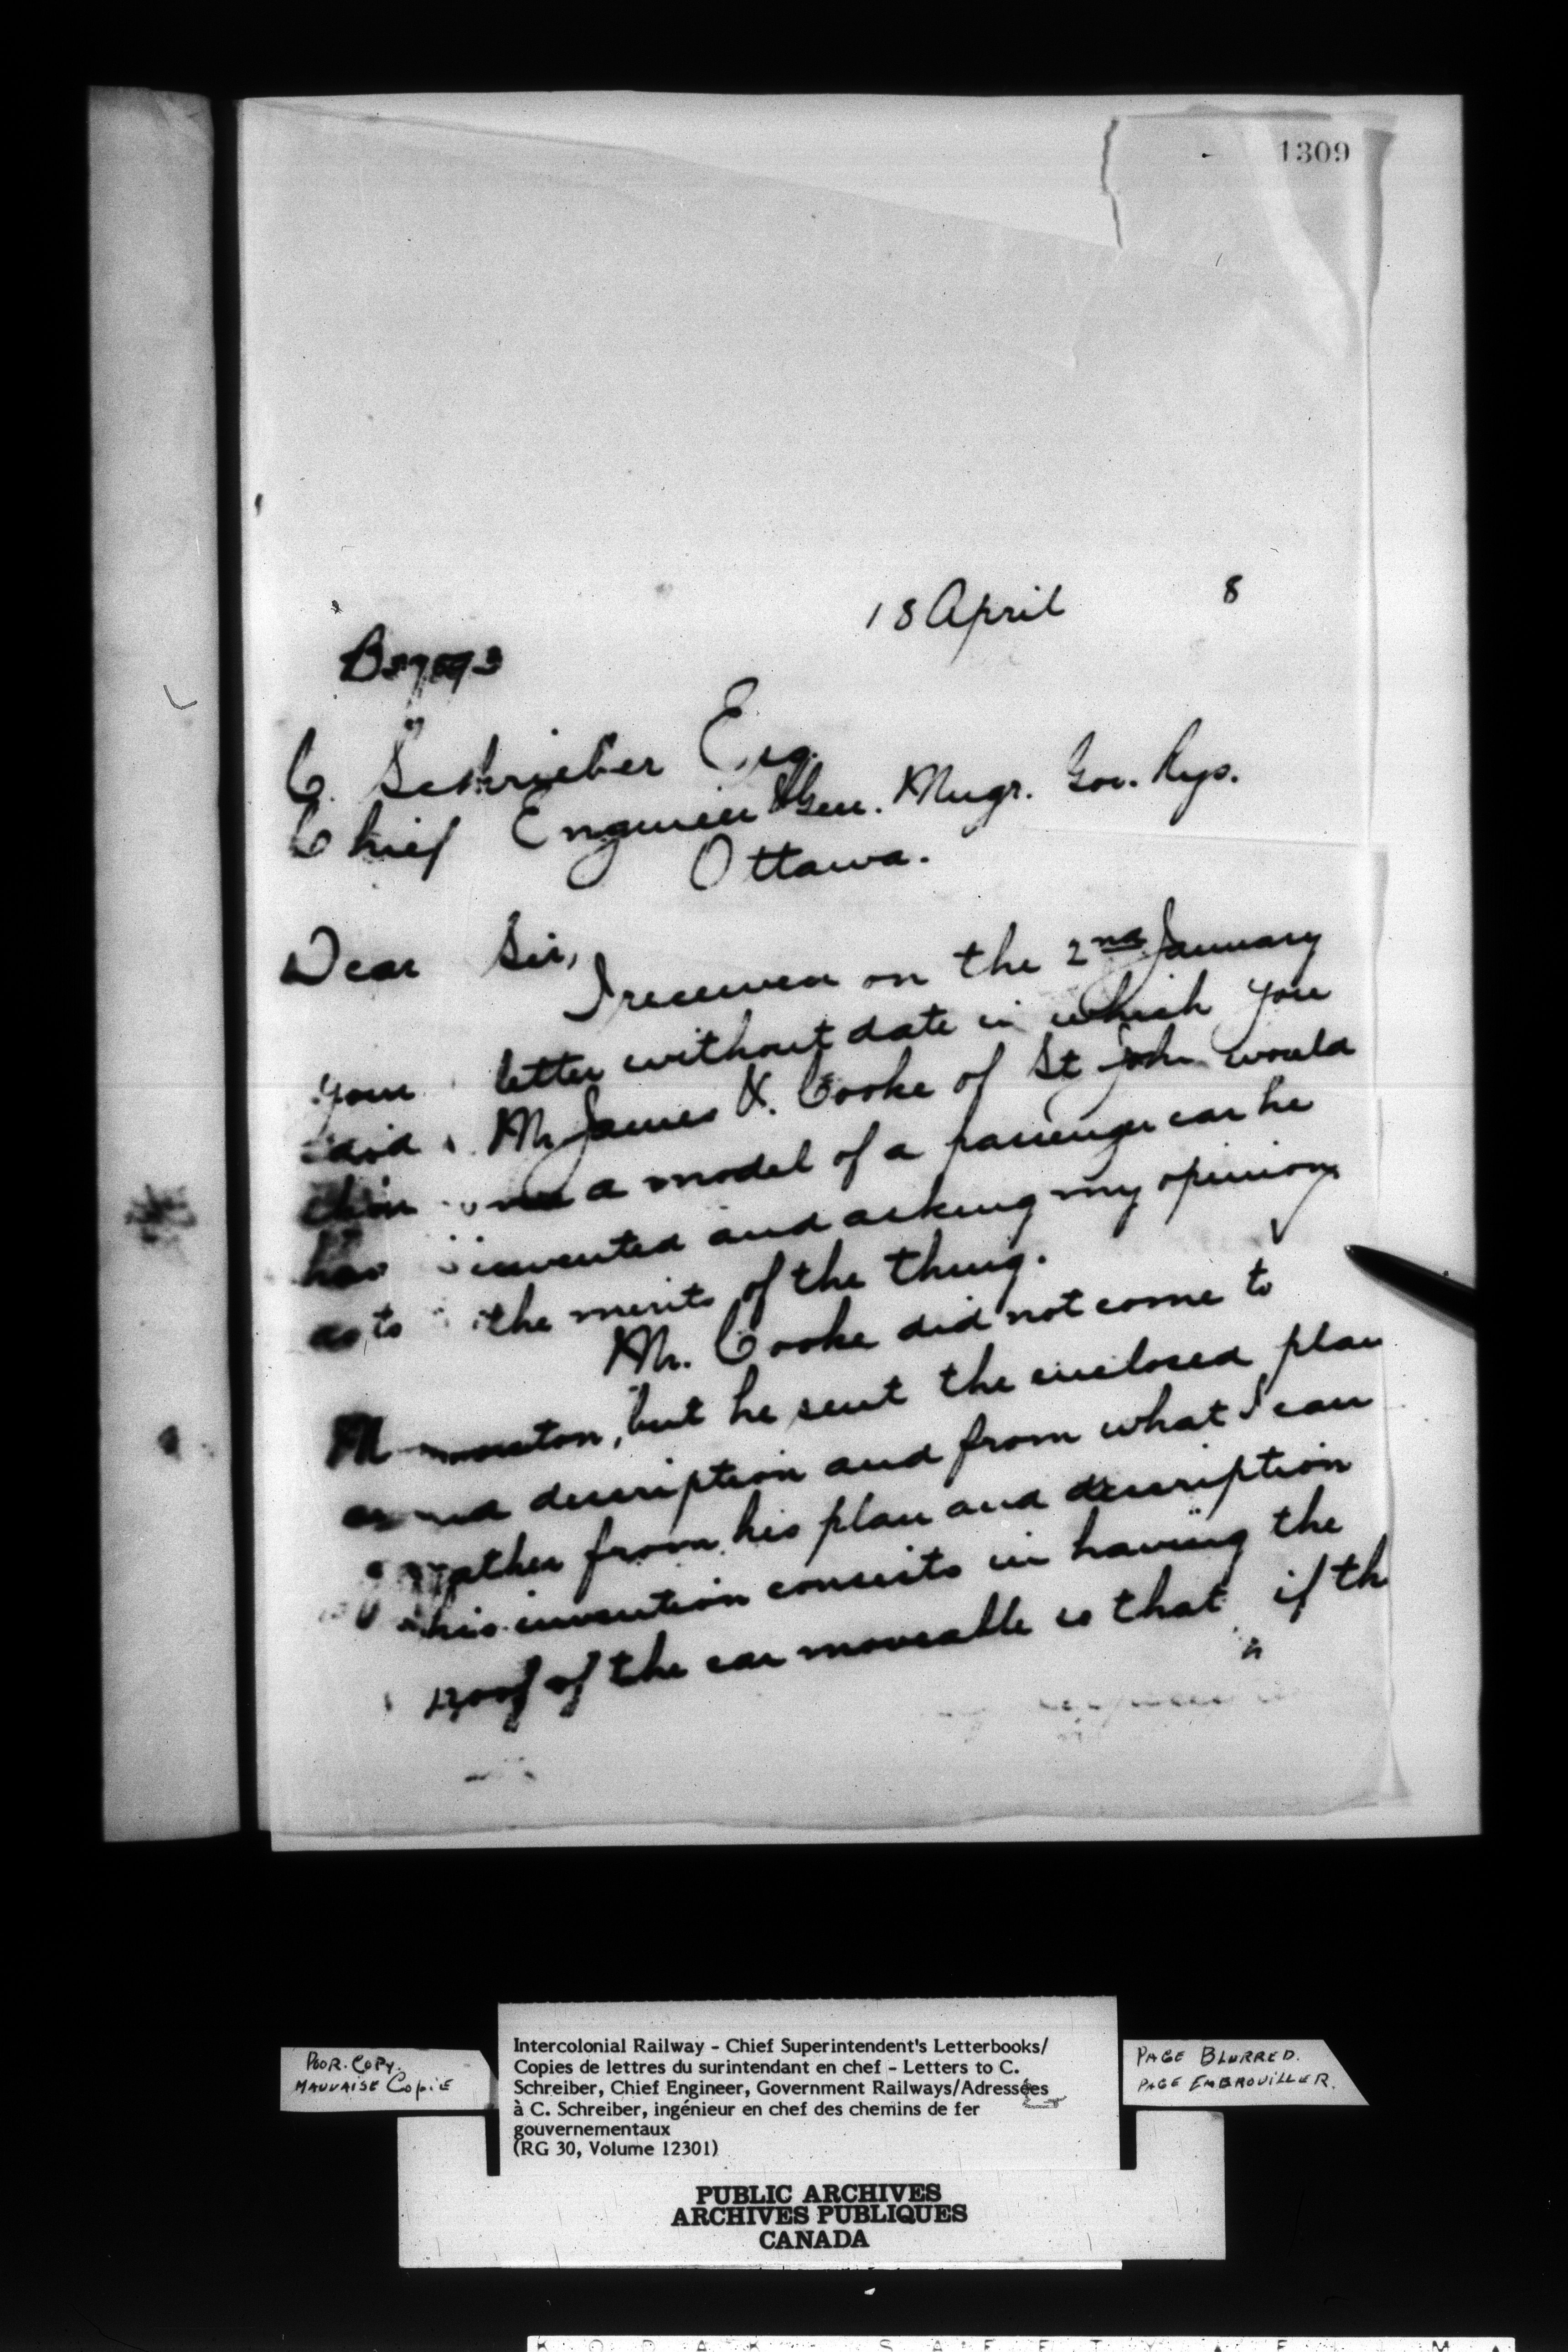 1309
18 April 8
C. Schrieber Esq.
Chief Engineer & Gen. Mngr. Gov. Rys.
Ottawa.
Dear Sir,
I received on the 2nd January
your letter without date in which you
said Mr James Cooke of St John would
me a model of a passenger car he
has invented and asking my opinion
as to the merits of the thing.
Mr. Cooke did not come to
Moncton, but he sent the enclosed plan
and description and from what I can
gather from his plan and description
his invention consists in having the
roof of the car moveable so that if th
POOR. COPY.
MAUVAISE COPIE
Intercolonial Railway - Chief Superintendent's Letterbooks/
Copies de lettres du surintendant en chef - Letters to C.
Schreiber, Chief Engineer, Government Railways/Adressées
à C. Schreiber, ingénieur en chef des chemins de fer
gouvernementaux
(RG 30, Volume 12301)
PAGE BLURRED.
PAGE EMBROUILLER.
PUBLIC ARCHIVES
ARCHIVES PUBLIQUES
CANADA